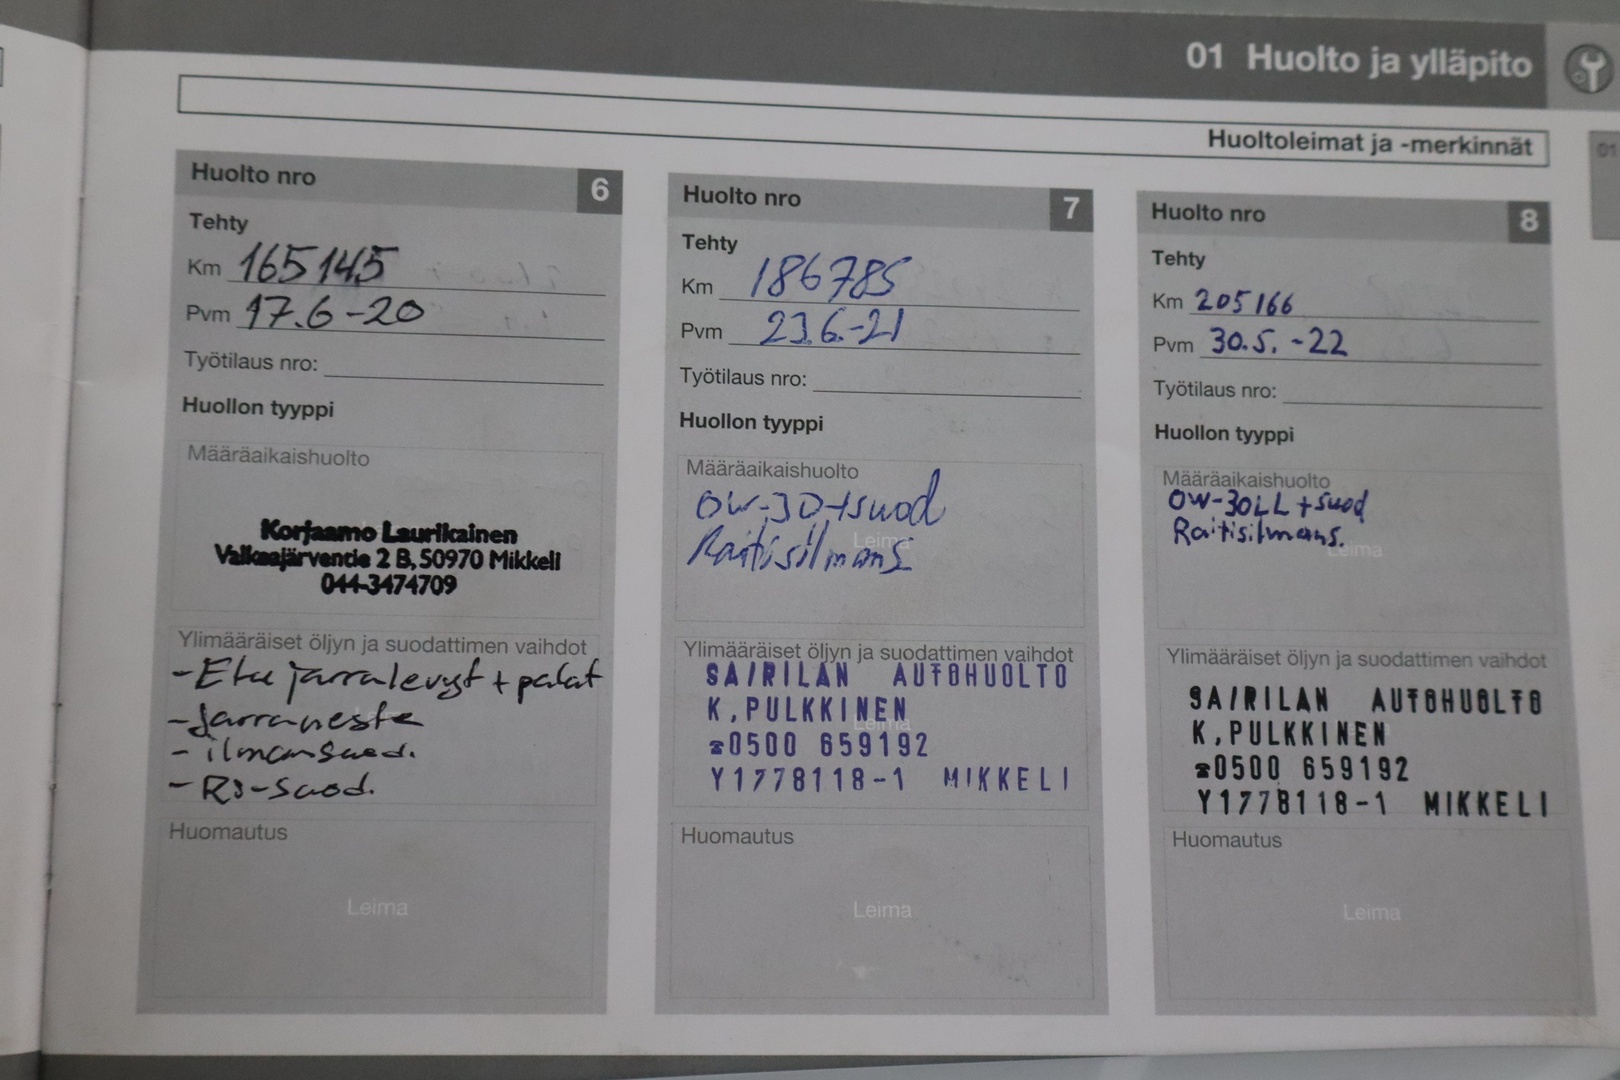 01 Huolto ja ylläpito
Huoltoleimat ja -merkinnät
01
Huolto nro 6
Tehty
Km 165145
Pvm 17.6-20
Työtilaus nro:
Huollon tyyppi
Määräaikaishuolto
Korjaamo Laurikainen
Valkeajärventie 2 B, 50970 Mikkeli
044-3474709
Ylimääräiset öljyn ja suodattimen vaihdot
- Etu jarralevyt + palat
- Jarraneste
- ilmansuod.
- Rs-suod.
Huomautus
Leima
Huolto nro 7
Tehty
Km 186785
Pvm 23.6.-21
Työtilaus nro:
Huollon tyyppi
Määräaikaishuolto
0W-30+suod
Raitisilmans
Leima
Ylimääräiset öljyn ja suodattimen vaihdot
SAIRILAN AUTOHUOLTO
K.PULKKINEN
Leima
☎0500 659192
Y1778118-1 MIKKELI
Huomautus
Leima
Huolto nro 8
Tehty
Km 205166
Pvm 30.5.-22
Työtilaus nro:
Huollon tyyppi
Määräaikaishuolto
0W-30LL+suod
Raitisilmans.
Leima
Ylimääräiset öljyn ja suodattimen vaihdot
SAIRILAN AUTOHUOLTO
K.PULKKINEN
☎0500 659192
Y1778118-1 MIKKELI
Huomautus
Leima